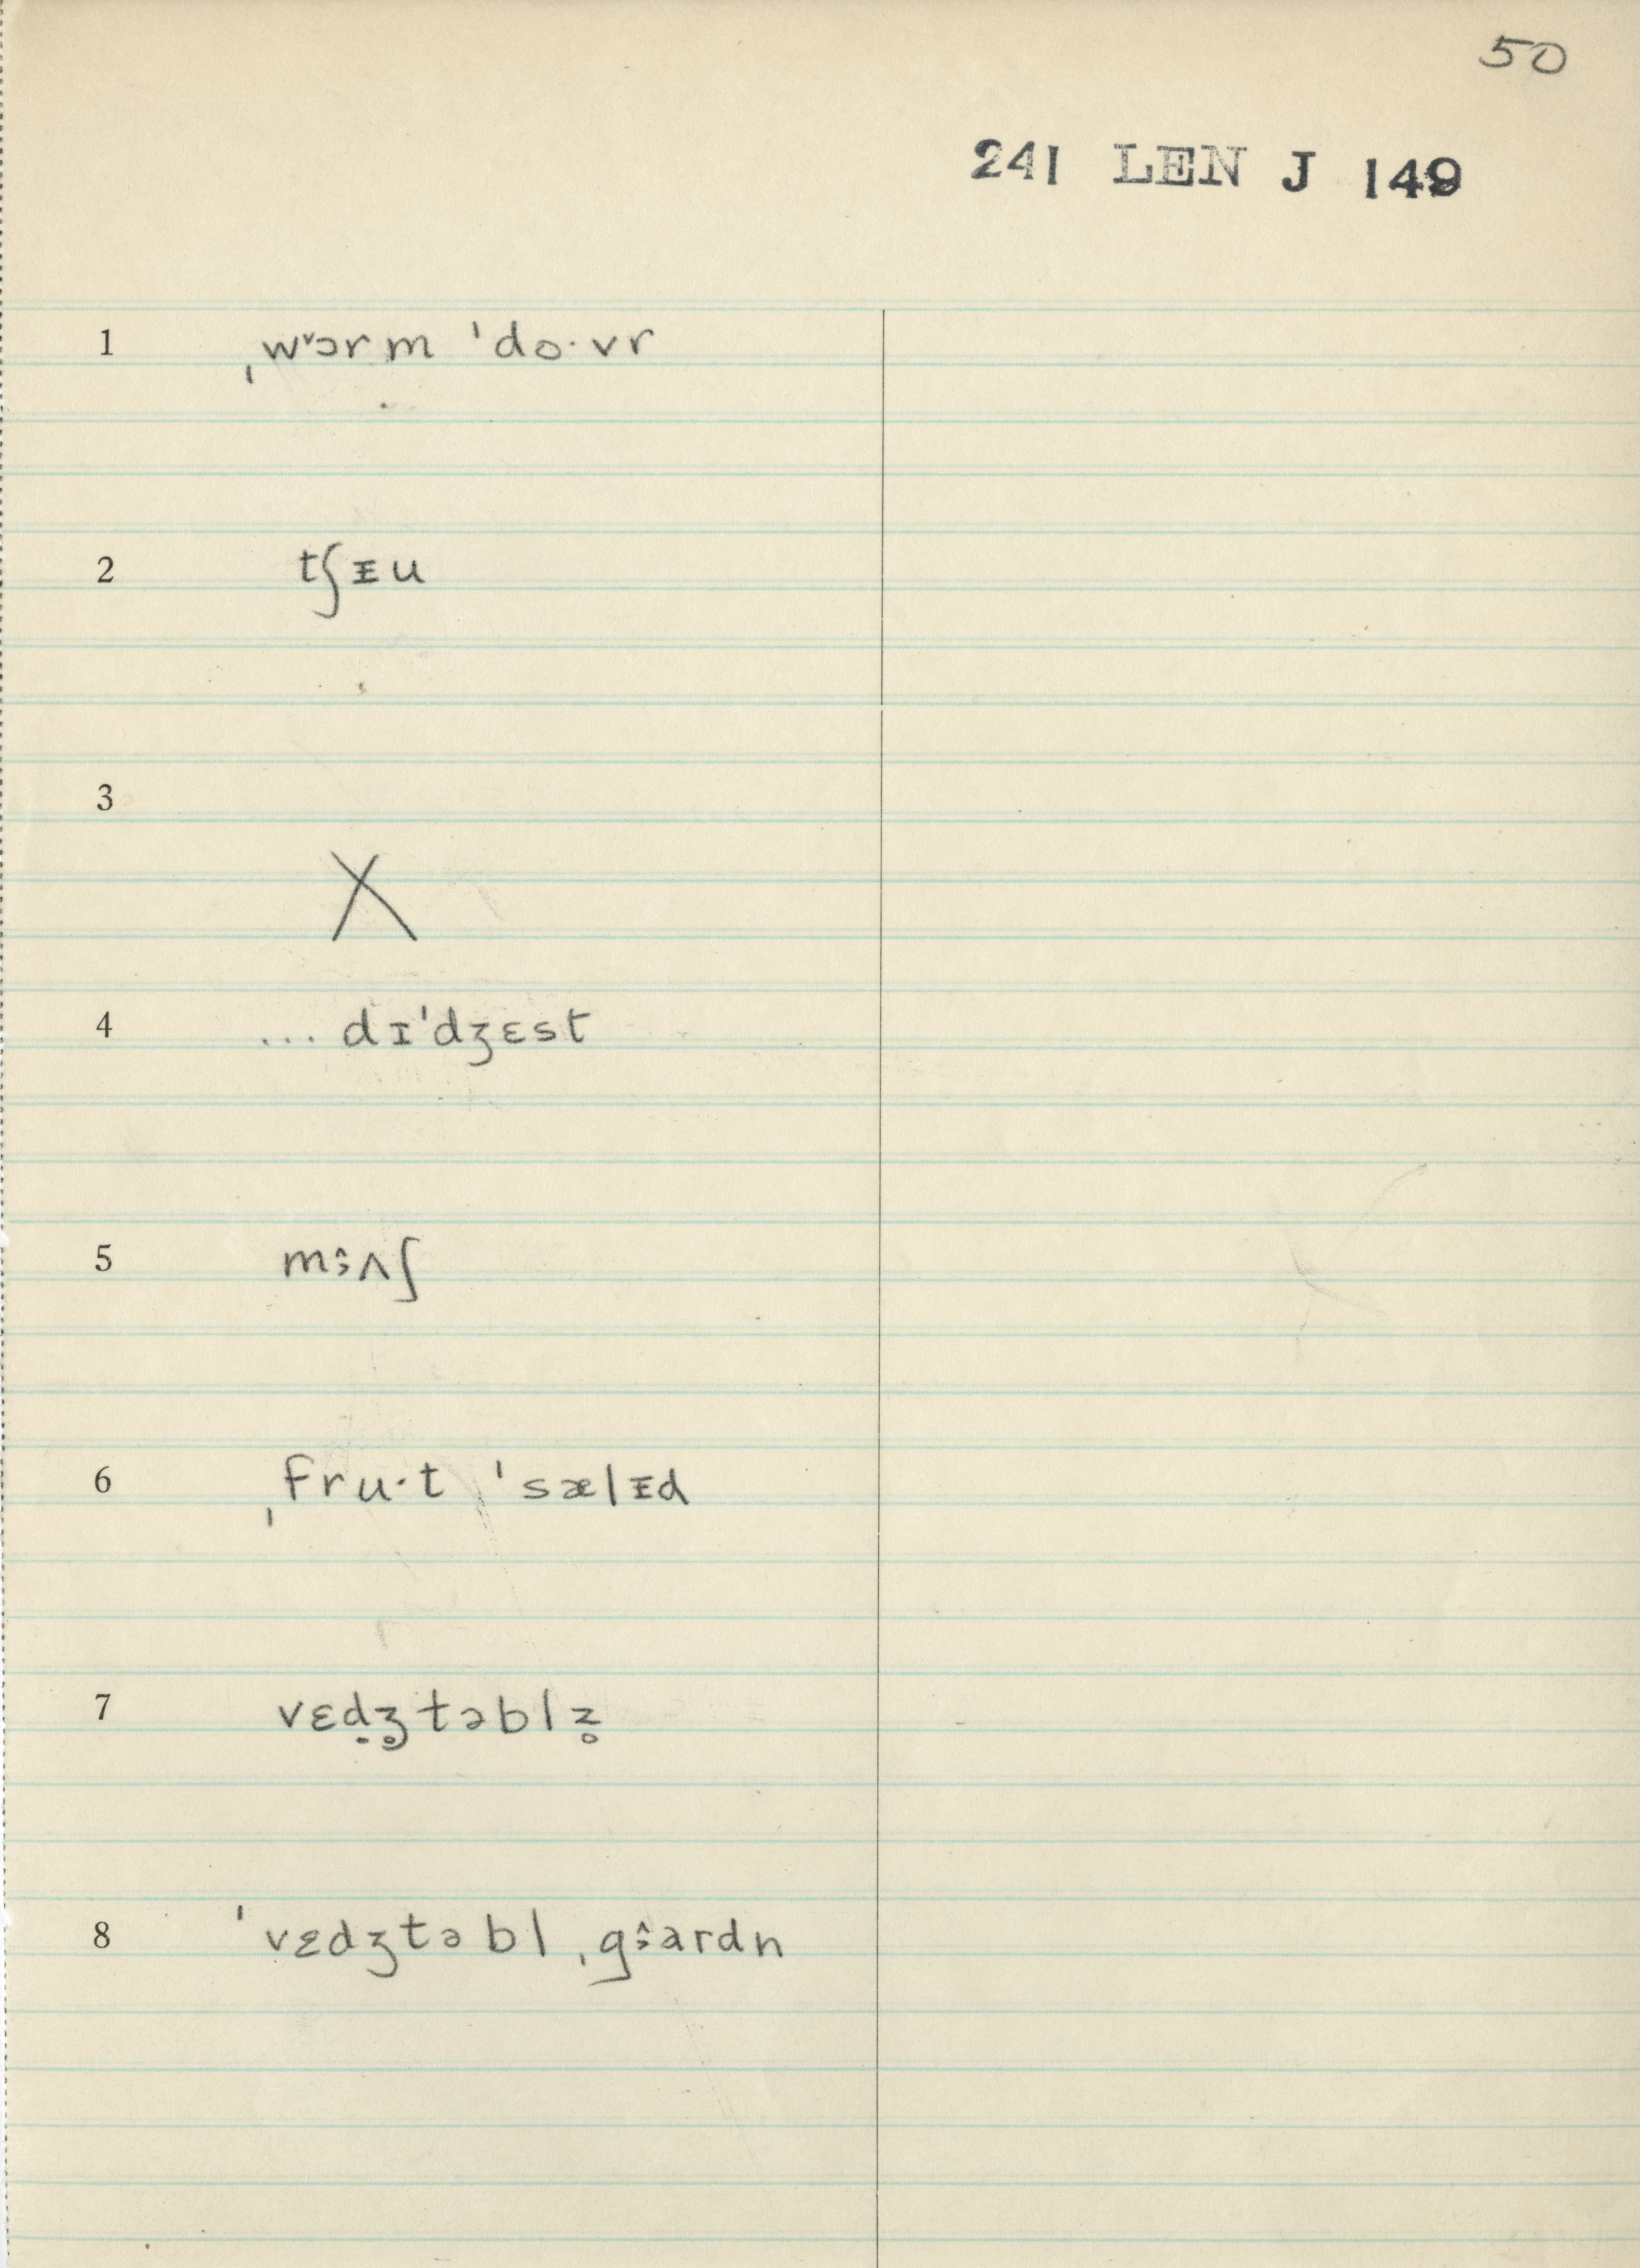 50
241 LEN J 149
1 ˌwᵛɔrm ˈdo·vr
2 tʃᵻu
3 X
4 ... dɪˈdʒɛst
5 mɜ̂ʌʃ
6 ˌfru·t ˈsælᵻd
7 vɛḍʒ̥təblz̥
8 ˈvɛdʒtəbl ˌgɜ̂ardn